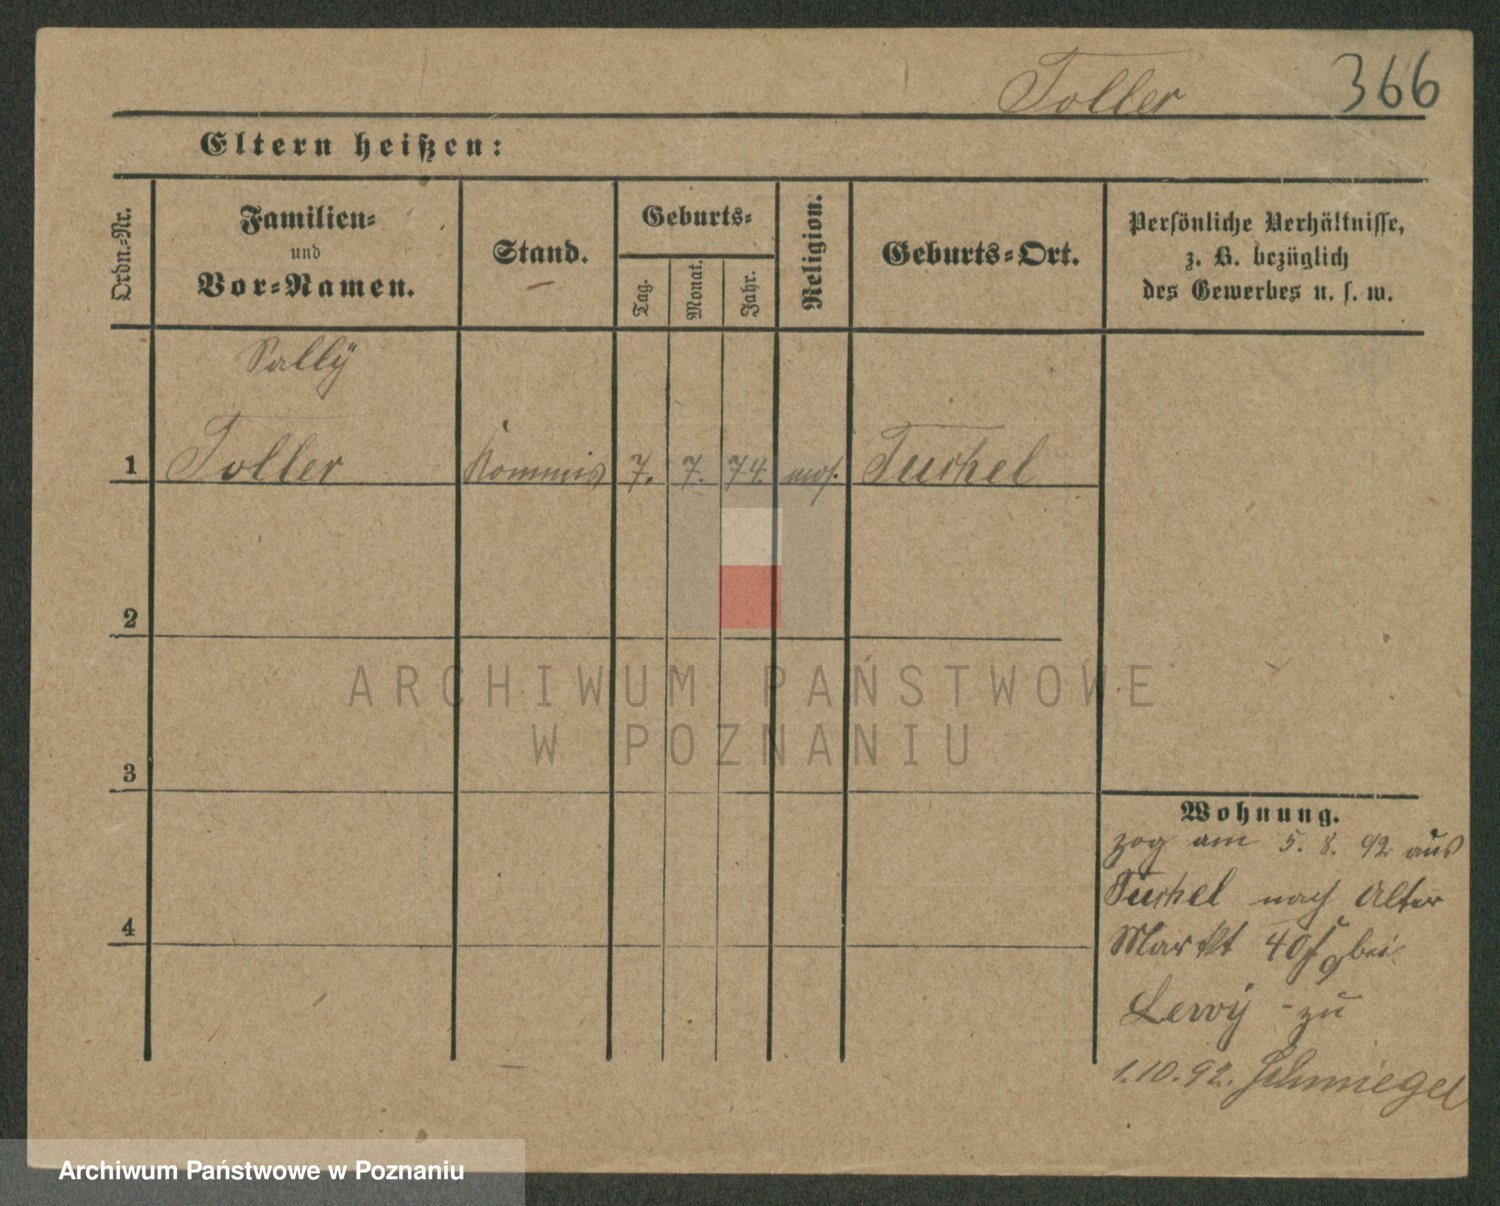 Toller 366
Eltern heißen:
Ordn.-Nr.
Familien-
und
Vor-Namen.
Stand.
Geburts-
Tag.
Monat.
Jahr.
Religion.
Geburts-Ort.
Persönliche Verhältnisse,
z. B. bezüglich
des Gewerbes u. s. w.
Sallÿ
1 Toller Kommis 7. 7. 74. mos. Tuchel
2
ARCHIWUM PAŃSTWOWE
W POZNANIU
3
Wohnung.
zog am 5. 8. 92 aus
Tuchel nach Alter
4
Markt 40 bei
Lewÿ - zu
1.10.92. Schmiegel
Archiwum Państwowe w Poznaniu